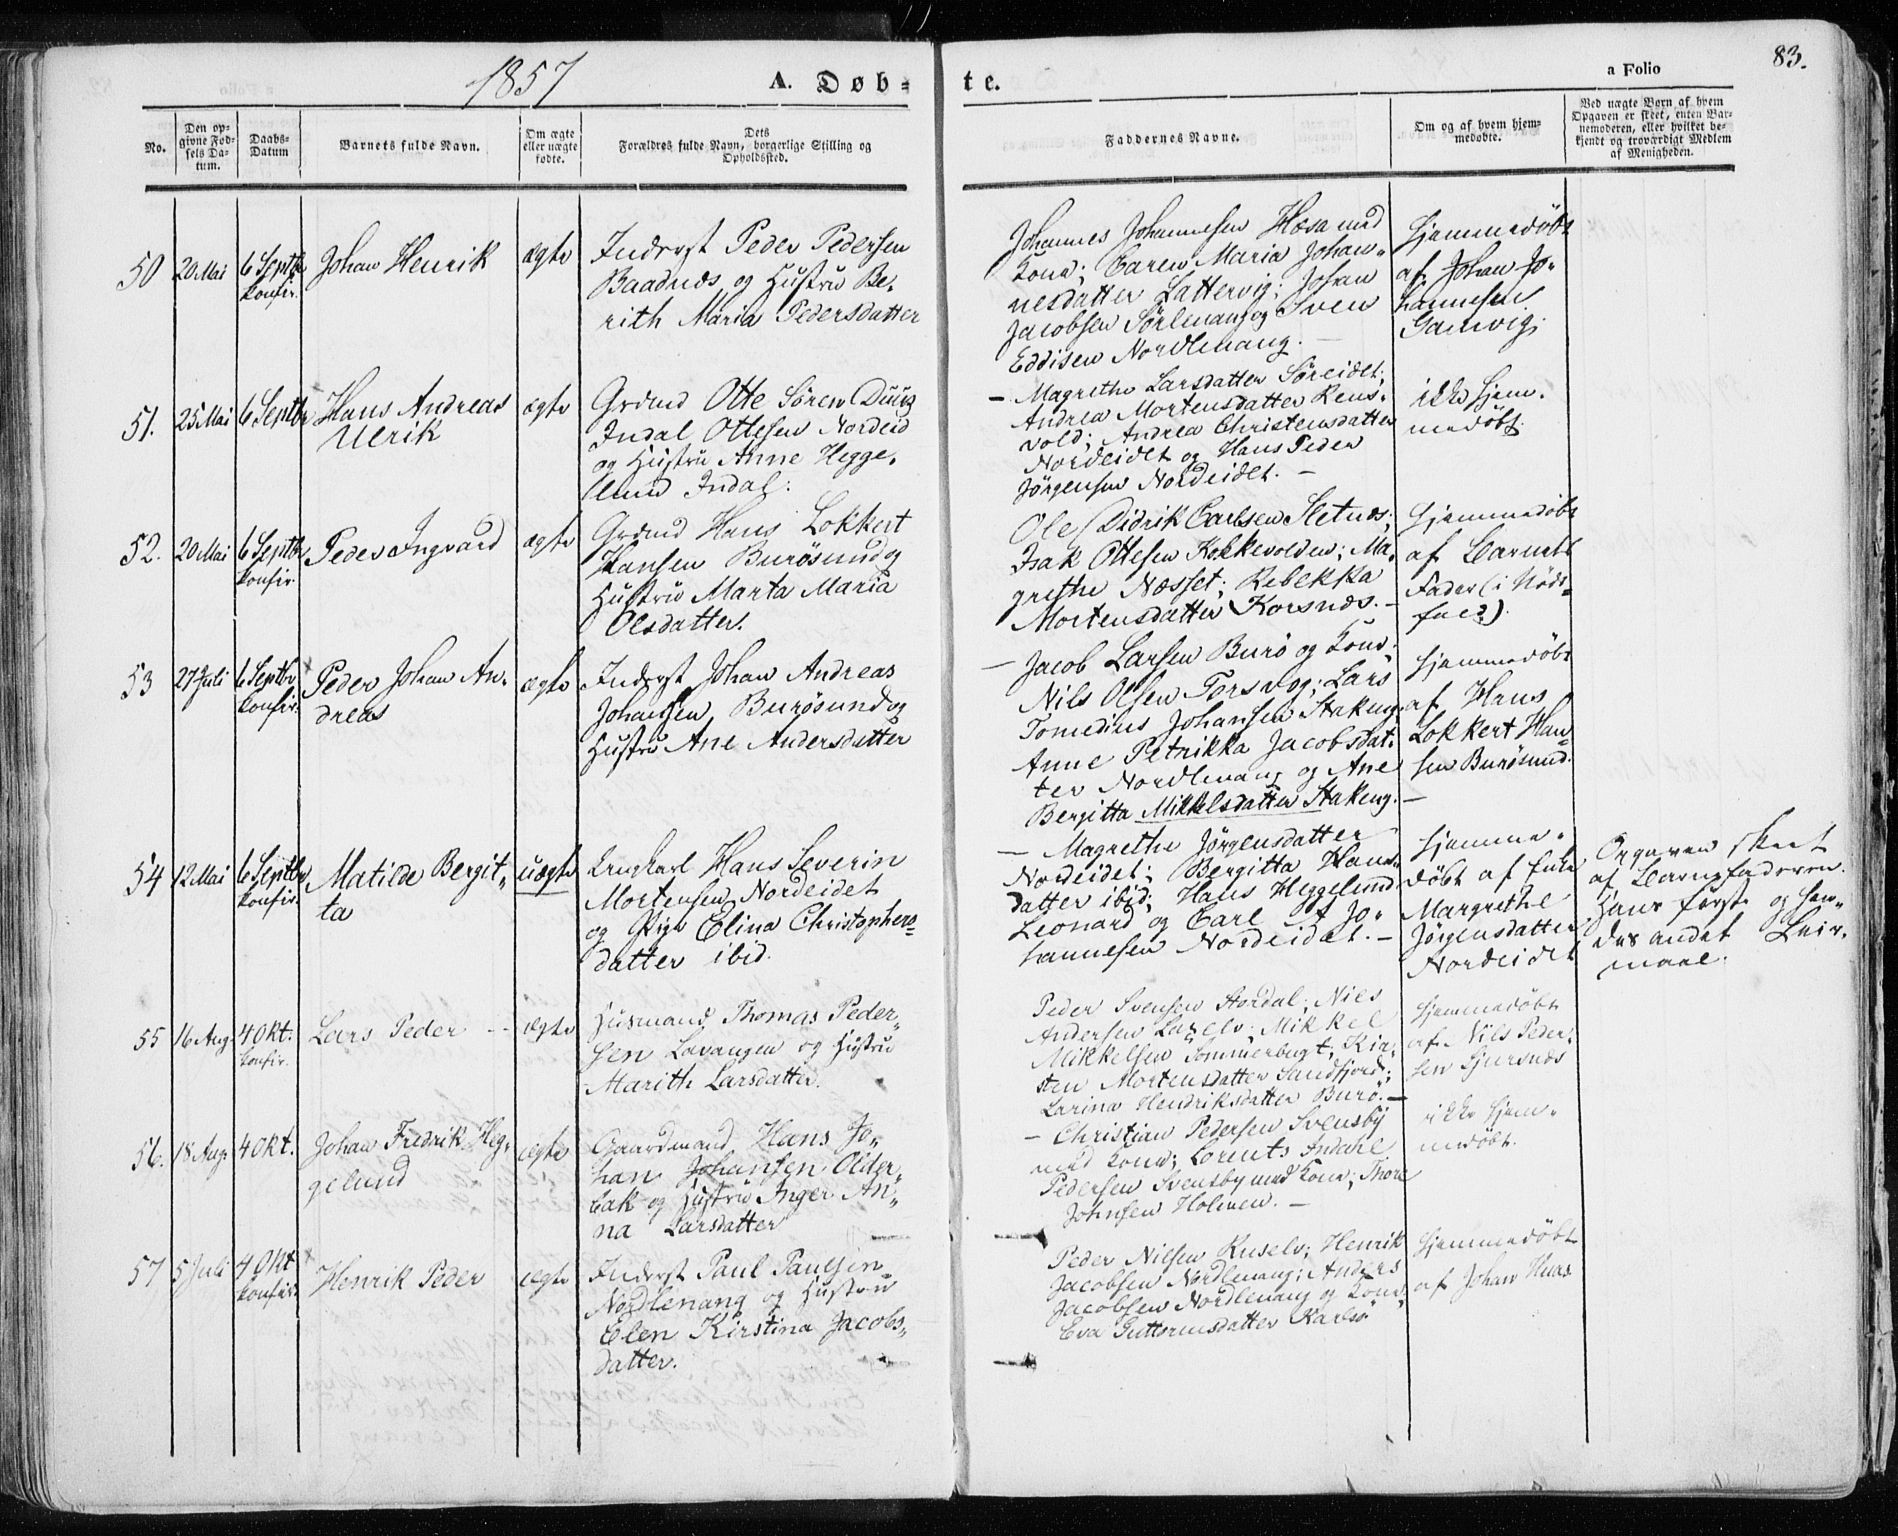 1857
A. Døb=
te.
a Folio
83.
No.
Den op-
givne Fød-
sels Da-
tum.
Daabs-
Datum
Barnets fulde Navn.
Om ægte
eller uægte
fødte.
Dets
Forældres fulde Navn, borgerlige Stilling og
Opholdssted.
Faddernes Navne.
Om og af hvem hjem-
medøbte.
Ved uægte Børn af hvem
Opgaven er skeet, enten Bar-
nemoderen, eller hvilket be-
kjendt og troværdigt Medlem
af Menigheden.
50
20 Mai
6 Septbr
konfir.
Johan Henrik
ægte
Inderst Peder Pedersen
Baadnes og Hustru Be-
rith Maria Pedersdatter
Johannes Johannesen Hæsa med
Kone; Caren Maria Johan-
nesdatter Lattervig; Johan
Jacobsen Sørlenang og Sven
Eddisen Nordlenang. —
Hjemmedøbt
af Johan Jo-
hannesen
Gamvig.
51.
25 Mai
6 Septbr
Hans Andreas
Ulrik
ægte
Grdmd Otte Sören Duus
Indal Ottesen Nordeid
og Hustru Anne Hegge-
lund Indal.
— Magrethe Larsdatter Söreidet;
Andrea Mortensdatter Rens-
vold; Andrea Christensdatter
Nordeidet og Hans Peder
Jörgensen Nordeidet. —
ikke hjem-
medøbt.
52.
20 Mai
6 Septbr
konfir.
Peder Ingvard
ægte
Grdmd Hans Lokkert
Hansen Burösund og
Hustru Marta Maria
Olsdatter.
Ole Didrik Carlsen Sletnæs;
Isak Ottesen Kokkevolden; Ma-
grethe Næsset; Rebekka
Mortensdatter Korsnæs. —
Hjemmedøbt
af Barnets
Fader (i Nöds-
fald).
53
27 Juli
6 Septbr
konfir.
Peder Johan An-
dreas
ægte
Inderst Johan Andreas
Johansen Burösund og
Hustru Ane Andersdatter
— Jacob Larsen Burö og Kone;
Nils Olsen Torsvog; Lars
Tomedius Johansen Stakeng;
Anne Petrikka Jacobsdat-
ter Nordlenang og Ane
Bergitta Mikkelsdatter Stakeng. —
Hjemmedøbt
af Hans
Lokkert Han-
sen Burösund.
54
12 Mai
6 Septbr
konfir.
Matilde Bergit-
ta
uægte
Ungkarl Hans Severin
Mortensen Nordeidet
og Pige Elina Christophers-
datter ibid.
— Magrethe Jörgensdatter
Nordeidet; Bergitta Hans-
datter ibid; Hans Heggelund
Leonard og Carl A Jo-
hannesen Nordeidet. —
Hjemme-
döbt af Enke
Margrethe
Jörgensdatter
Nordeidet
Opgaven skeet
af Barnefaderen.
Hans förste og Hen-
des andet Leier-
maal.
55
16 Aug.
4 Okt.
konfir.
Lars Peder
ægte
Husmand Thomas Peder-
sen Lavangen og Hustru
Marith Larsdatter.
Peder Svensen Stordal; Niels
Andersen Laxelv; Mikkel
Mikkelsen Sommerbugt; Kir-
sten Mortensdatter Sandfjord;
Larina Hendriksdatter Burö. —
Hjemmedøbt
af Nils Peder-
sen Gjøvsnæs
56.
18 Aug.
4 Okt.
Johan Fredrik Heg-
gelund
ægte
Gaardmand Hans Jo-
han Johansen Older-
bak og Hustru Inger An-
na Larsdatter
— Christian Pedersen Svensby
med Kone; Lorents Indahl
Pedersen Svensby med Kone; Thore
Johnsen Holmen. —
ikke hjem-
medøbt.
57
5 Juli
4 Okt
konfir.
Henrik Peder
ægte
Inderst Paul Paulsen
Nordlenang og Hustru
Elen Kirstina Jacobs-
datter.
Peder Nilsen Kuselv; Henrik
Jacobsen Nordlenang; Anders
Jacobsen Nordlenang og Kone;
Eva Guttormsdatter Karlsö
Hjemmedøbt
af Johan